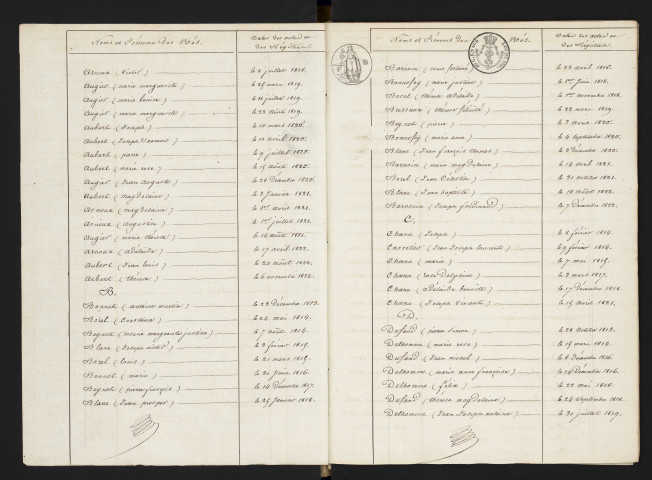 Noms et Prénoms des Nés.
Dates des actes ou des Régistres
Arnoux (Victor) le 4 juillet 1818.
Augier (marie marguerite) le 25 mars 1819.
Augier (marie louise) le 11 juillet 1819.
Augier (marie marguerite) le 23 août 1819.
Aubert (Joseph) le 10 mars 1820.
Aubert (Joseph) le 11 avril 1820.
Aubert (pierre) le 9 juillet 1820.
Aubert (marie rose) le 15 août 1820.
Augier (Jean auguste) le 26 Décembre 1820.
Aubert (magdelaine) le 3 Janvier 1821.
Arnoux (magdelaine) le 1er avril 1821.
Arnoux (augustin) le 1er juillet 1821.
Augier (marie) le 14 août 1821.
Arnoux (adélaide) le 17 avril 1822.
Aubert (Jean louis) le 20 août 1822.
Aubert (thérèse) le 6 novembre 1822.
B.
Bonnet (antoine martin) le 28 Décembre 1813.
Borel (Constance) le 22 mai 1814.
Begnet (marie marguerite justine) le 7 août 1814.
Blanc (Joseph victor) le 3 février 1815.
Borel (louis) le 21 mars 1815.
Bonnet (marie) le 20 juin 1816.
Begnet (pierre françois) le 14 Décembre 1817.
Blanc (Jean prosper) le 25 Janvier 1818.
Noms et Prénoms des Nés.
Dates des actes ou des Régistres
le 28 avril 1818.
(marie justine) le 1er Juin 1818.
Borel (adélaide) le 1er novembre 1818.
le 22 mars 1819.
Begnet (pierre) le 3 avril 1820.
(marie anne) le 4 septembre 1820.
Blanc (Jean françois) le 3 Décembre 1820.
(marie magdelaine) le 14 avril 1821.
Borel (Jean Célestin) le 31 octobre 1821.
Blanc (Jean baptiste) le 18 août 1822.
(Joseph ferdinand) le 7 Décembre 1822.
C.
Chaix (Joseph) le 8 février 1814.
(Jean Joseph) le 9 février 1814.
Chaix (marie) le 7 mai 1815.
Chaix (rose Delphine) le 3 mars 1817.
Chaix (adélaide) le 17 Décembre 1818.
Chaix (Joseph Vincent) le 15 avril 1821.
D.
Dufaud (pierre simon) le 28 octobre 1813.
Delhomme (marie rose) le 15 mars 1814.
Dufaud (Jean michel) le 8 Décembre 1816.
Delhomme (marie anne françoise) le 14 Décembre 1816.
Delhomme (félix) le 22 mai 1818.
Dufaud (thérèse magdelaine) le 24 septembre 1818.
Delhomme (Jean Joseph antoine) le 31 juillet 1819.